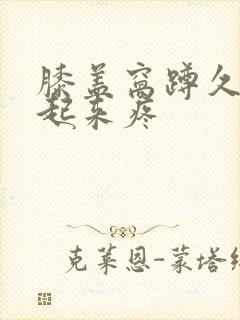 膝盖窝蹲久
起来疼
克莱恩-蒙塔